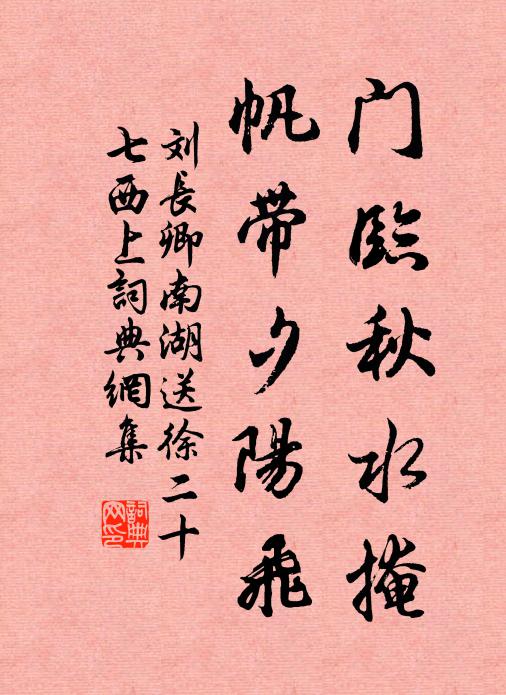 门临秋水掩
帆带夕陽飛
刘長卿南湖送徐二十
七西上詞典網集
詞典
网印